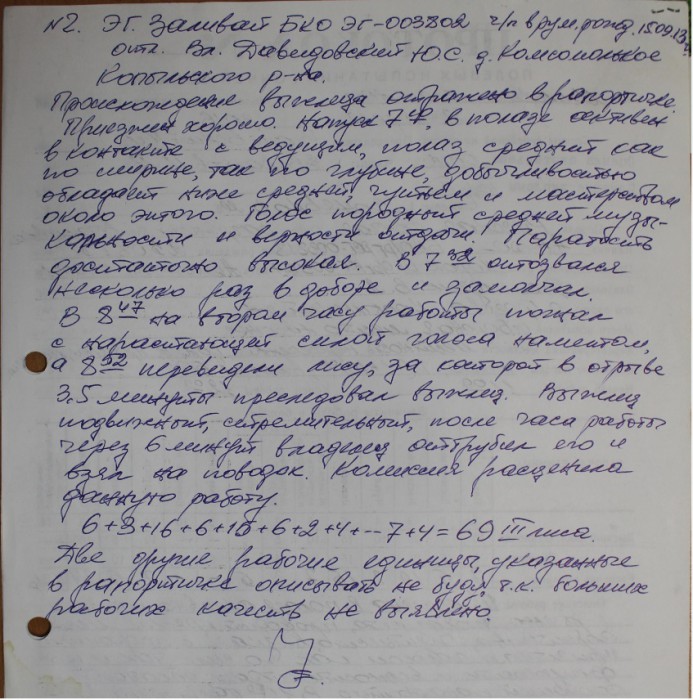 №2. ЭГ. Заливай БКО ЭГ-003802 ч/п в рум. рожд. 15.09.13
отл. Вл. Давидовский Ю.С. д. Комсомолькое
Копыльского р-на.
Происхождение выжлеца отражено в рапортичке.
Приезжен хорошо. Напуск 7 42, в полазе активен
в контакте с ведущим, полаз средний как
по ширине, так по глубине, добычливостью
обладает ниже средней, чутьем и мастерством
около этого. Голос породный средней музы-
кальности и верности отдачи. Паратость
достаточно высокая. В 7 52 отозвался
несколько раз в доборе и замолчал.
В 8 47 на втором часу работы погнал
с нарастающей силой голоса
а 8 52 перевидели лису, за которой в отрыве
3,5 минуты преследовал выжлец. Выжлец
подвижный, стремительный, после часа работы
через 6 минут владелец оттрубил его и
взял на поводок. Комиссия расценила
данную работу.
6+3+16+6+15+6+2+4+--7+4=69 III лиса.
Две другие рабочие единицы, указанные
в рапортичке описывать не буду т.к. больших
рабочих качеств не выявлено.